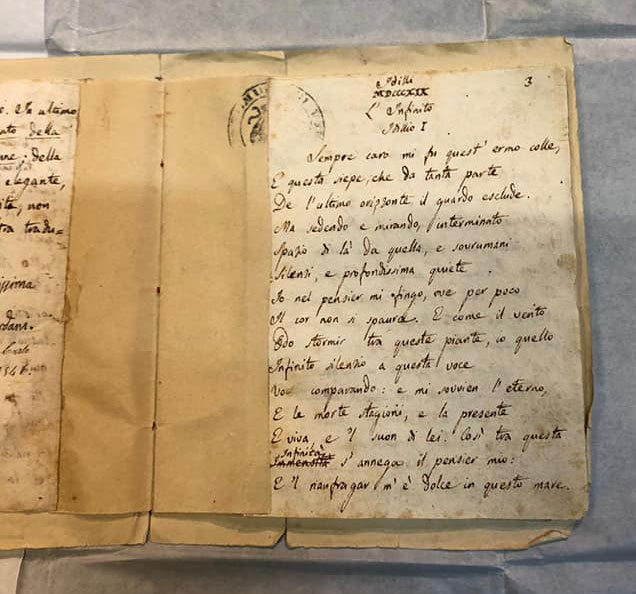 In ultimo
della
della
elegante,
non
tradu=
Idilli
MDCCCXIX
3
L'Infinito
Idillio I
Sempre caro mi fu quest'ermo colle,
E questa siepe, che da tanta parte
De l'ultimo orizzonte il guardo esclude.
Ma sedendo e mirando, interminato
Spazio di là da quella, e sovrumani
Silenzi, e profondissima quiete
Io nel pensier mi fingo, ove per poco
Il cor non si spaura. E come il vento
Odo stormir tra queste piante, io quello
Infinito silenzio a questa voce
Vo comparando: e mi sovvien l'eterno,
E le morte stagioni, e la presente
E viva, e 'l suon di lei. Così tra questa
Infinità
Immensità s'annega il pensier mio:
E 'l naufragar m'è dolce in questo mare.